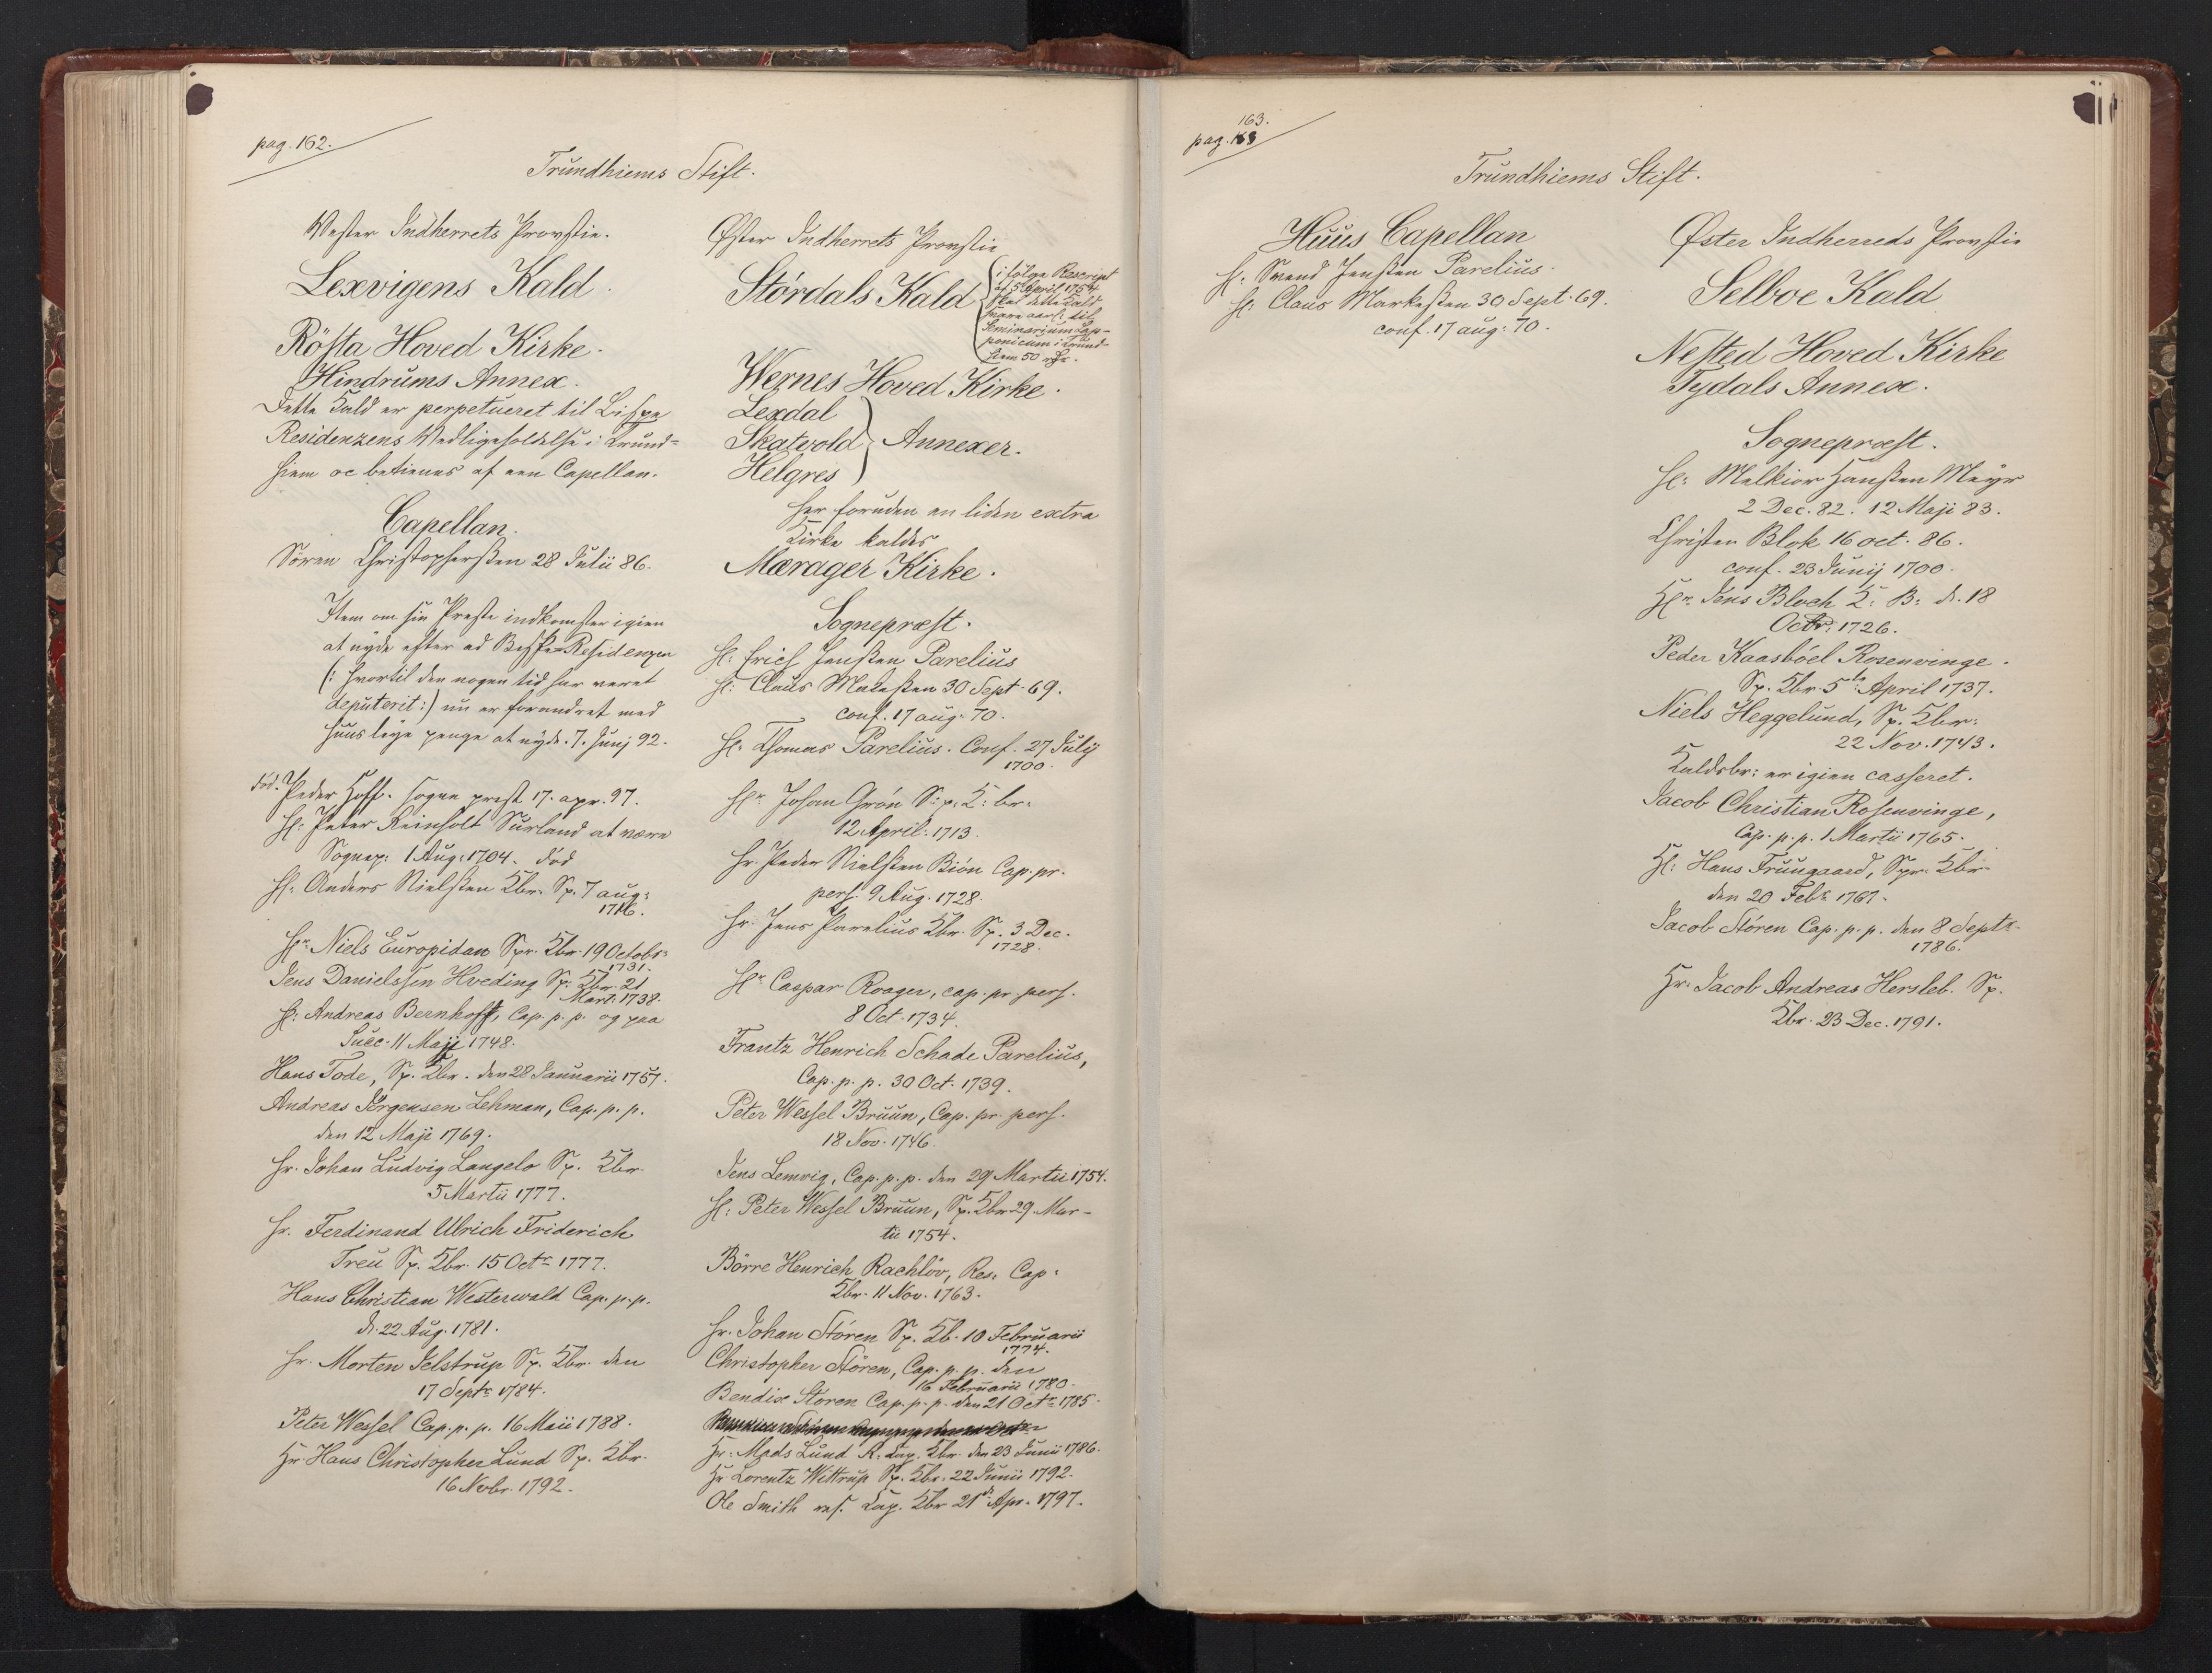 pag. 162.
Trundhiems Stift.
Vester Indherrets Provstie.
Lexvigens Kald.
Røsta Hoved Kirke.
Hindrums Annex.
Dette Kald er perpetueret til Bispe
Residenzens Vedligeholdelse i Trund-
hiem oc betienes af een Capellan.
Capellan.
Sören Christophersen 28 Julii 86.
Item om sin Preste indkomster igien
at nyde efter ad Bispe-Residenzen
(: hvortil den nogen tid har veret
deputerit :) nu er forandret med
huus leye penge at nyde. 7. Junj 92.
död. Peder Hoff. sogne prest 17. apr. 97.
Hr: Peter Reinholt Surland at være
Sognep: 1 Aug: 1704. död
Hr: Anders Nielsen Kbr. Sp. 7 aug:
1716.
Hr. Niels Europidan Spr. Kbr. 19 Octobr:
1731.
Jens Danielssen Hveding Sp. Kbr. 21
Mart: 1738.
Hr: Andreas Bernhoft, Cap. p. p. og paa
Succ. 11 Maji 1748.
Hans Tode, Sp. Kbr. den 28 Januarii 1757.
Andreas Jörgensen Lehman, Cap. p. p.
den 12 Maji 1769.
Hr. Johan Ludvig Langelo Sp. Kbr.
5 Martii 1777.
Hr. Ferdinand Ulrich Friderich
Treu Sp. Kbr. 15 Octr 1777.
Hans Christian Westerwald Cap. p. p.
d. 22 Aug. 1781.
Hr. Morten Jelstrup Sp. Kbr. den
17 Septr 1784.
Peter Wessel Cap. p. p. 16 Maii 1788.
Hr. Hans Christopher Lund Sp. Kbr.
16 Novbr. 1792.
Øster Indherrets Provstie
Størdals Kald
i følge Rescript
af 5 April 1754
skal dette Kald
svare aarl: til
Seminarium Lap-
ponicum i Trund-
hiem 50 rdr.
Wernes Hoved Kirke.
Lexdal
Skatvold Annexer.
Helgres
her foruden en liden extra
Kirke kaldes
Mærager Kirke.
Sognepræst.
Hr: Erich Jensen Parelius
Hr: Claus 30 Sept. 69.
conf. 17 aug: 70.
Hr. Thomas Parelius. Conf. 27 July
1700.
Hr. Johan Grøn S: p: K: br.
12 April. 1713.
Hr. Peder Nielsen Biön Cap. pr.
pers. 9 Aug. 1728.
Hr. Jens Parelius Kbr. Sp. 3 Dec.
1728.
Hr. Caspar Roager, cap. pr. pers.
8 Oct. 1734.
Frantz Henrich Schade Parelius,
Cap. p. p. 30 Oct. 1739.
Peter Wessel Bruun, Cap. pr. pers.
18 Nov. 1746.
Jens Lemvig, Cap. p. p. den 29 Martii 1754.
Hr: Peter Wessel Bruun, Sp. Kbr 29 Mar-
tii 1754.
Börre Henrich Rachløv, Res: Cap:
Kbr. 11 Nov. 1763.
Hr. Johan Støren Sp. Kb. 10 Februarii
1774.
Christopher Støren, Cap. p. p. den
16 Februarii 1780.
Bendix Støren Cap. p. p. den 21 Octr 1785.
Hr. Mads Lund R. Cap. Kbr. den 23 Junii 1786.
Hr Lorentz Wittrup Sp. Kbr. 22 Junii 1792.
Ole Smith res. Cap. Kbr 21de Apr. 1797.
163.
pag.
Trundhiems Stift.
Huus Capellan
Hr. Svend Jensen Parelius.
Hr: Claus 30 Sept. 69.
conf. 17 aug: 70.
Øster Indherreds Provstie
Selboe Kald
Nested Hoved Kirke
Tydals Annex.
Sognepræst.
Hr: Melkior Hansen Meyr
2 Dec. 82. 12 Maji 83.
Christen Blok 16 oct. 86.
conf. 23 Junij 1700.
Hr. Jens Bloch K: B: d. 18
Octbr: 1726.
Peder Kaasböel Rosenvinge.
Sp. Kbr. 5te April 1737.
Niels Heggelund, Sp. Kbr.
22 Nov. 1743.
Kaldsbr: er igien casseret.
Jacob Christian Rosenvinge,
Cap. p. p. 1 Martii 1765.
Hr: Hans Fruugaard, Spr. Kbr
den 20 Febr 1767.
Jacob Støren Cap. p. p. den 8 Septr.
1786.
Hr. Jacob Andreas Hersleb. Sp.
Kbr. 23 Dec. 1791.